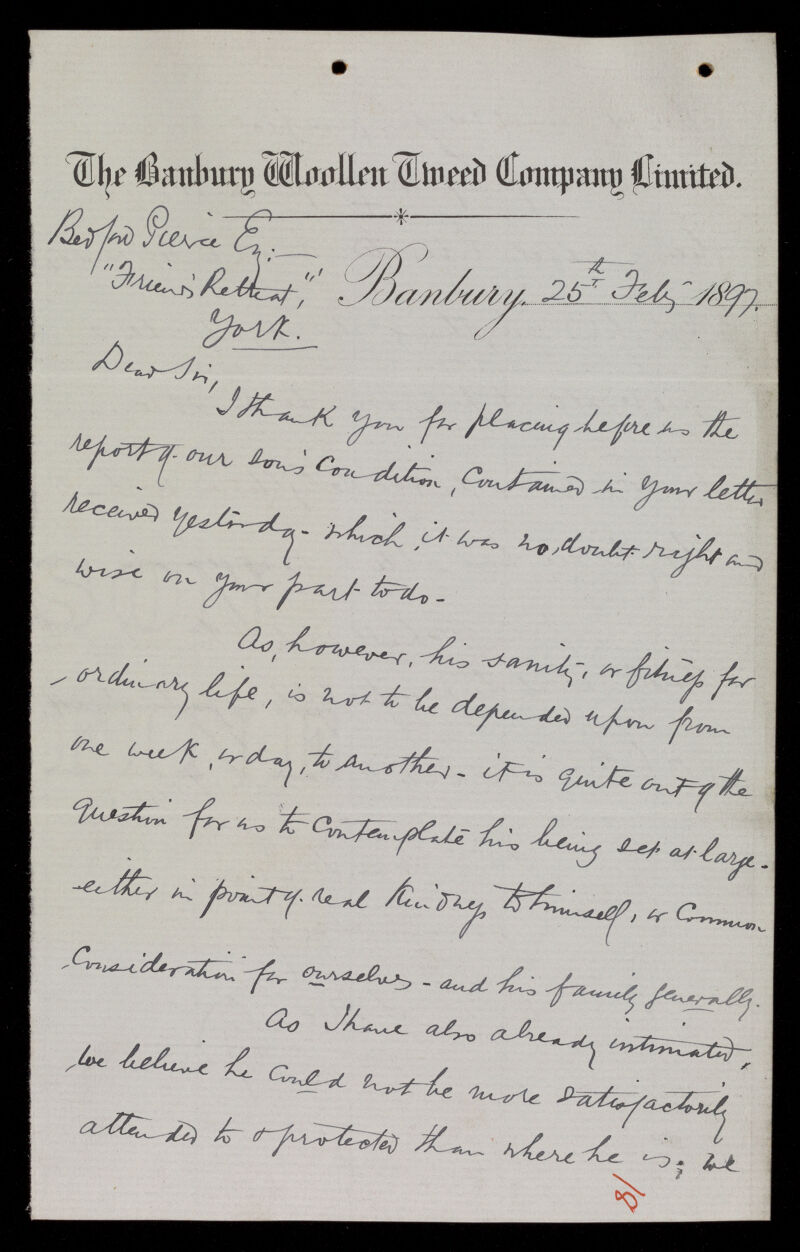 The Banbury Woollen Tweed Company Limited.
Bedford Pierce Esq:—
"Friends Retreat,"
York.
Banbury, 25th Feby 1897.
Dear Sir,
I thank you for placing before us the
report of our son's condition, contained in your letter
received yesterday - which, it was no doubt right and
wise on your part to do -
As, however, his sanity, or fitness for
ordinary life, is not to be depended upon from
one week, or day, to another - it is quite out of the
question for us to contemplate his being set at large -
either in point of real kindness to himself, or common
consideration for ourselves - and his family generally.
As I have also already intimated,
we believe he could not be more satisfactorily
attended to & protected than where he is; we
81